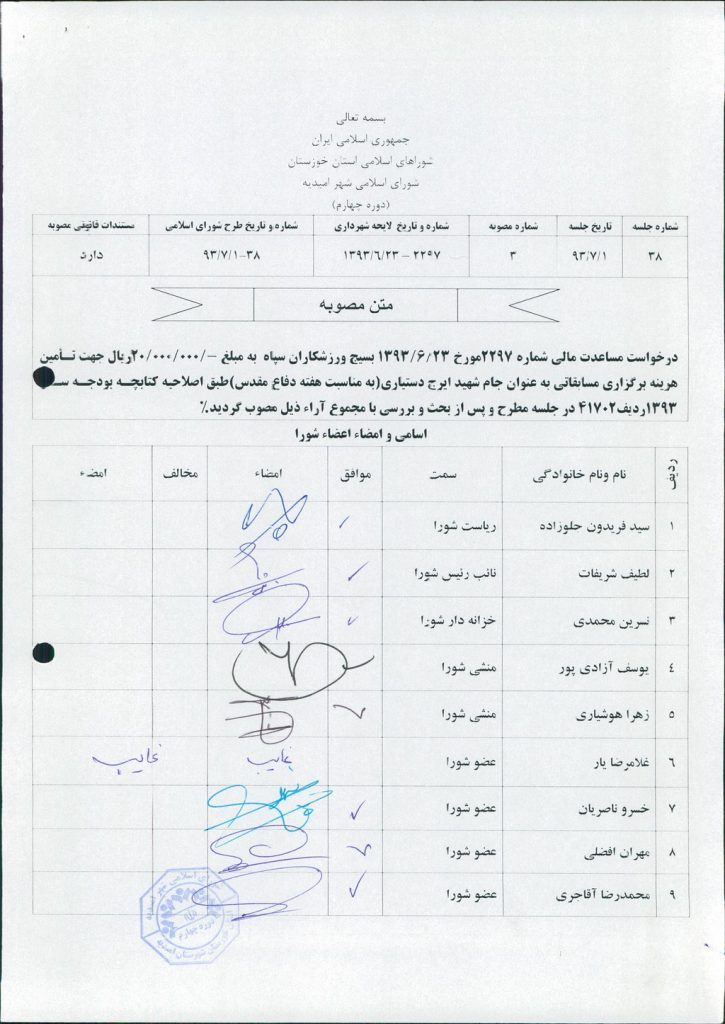 بسمه تعالی
جمهوری اسلامی ایران
شوراهای اسلامی استان خوزستان
شورای اسلامی شهر امیدیه
(دوره چهارم)
شماره جلسه تاریخ جلسه شماره مصوبه شماره و تاریخ لایحه شهرداری شماره و تاریخ طرح شورای اسلامی مستندات قانونی مصوبه
۳۸ ۹۳/۷/۱ ۳ ۲۲۹۷ – ۱۳۹۳/۶/۲۳ ۳۸-۹۳/۷/۱ دارد
متن مصوبه
درخواست مساعدت مالی شماره ۲۲۹۷مورخ ۱۳۹۳/۶/۲۳ بسیج ورزشکاران سپاه به مبلغ -/۲۰/۰۰۰/۰۰۰ریال جهت تـأمین
هزینه برگزاری مسابقاتی به عنوان جام شهید ایرج دستیاری(به مناسبت هفته دفاع مقدس)طبق اصلاحیه کتابچـه بودجـه
۱۳۹۳ردیف۴۱۷۰۲ در جلسه مطرح و پس از بحث و بررسی با مجموع آراء ذیل مصوب گردید.٪
اسامی و امضاء اعضاء شورا
ردیف نام ونام خانوادگی سمت موافق امضاء مخالف امضاء
۱ سید فریدون جلوزاده ریاست شورا
۲ لطیف شریفات نائب رئیس شورا
۳ نسرین محمدی خزانه دار شورا
۴ یوسف آزادی پور منشی شورا
۵ زهرا هوشیاری منشی شورا
۶ غلامرضا یار عضو شورا غایب غایب
۷ خسرو ناصریان عضو شورا
۸ مهران افضلی عضو شورا
۹ محمدرضا آقاجری عضو شورا
دوره چهارم